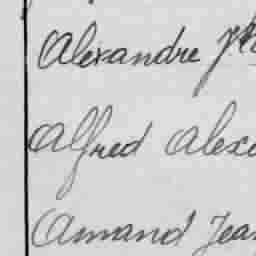 Alexandre
Alfred Alex
Armand Jean